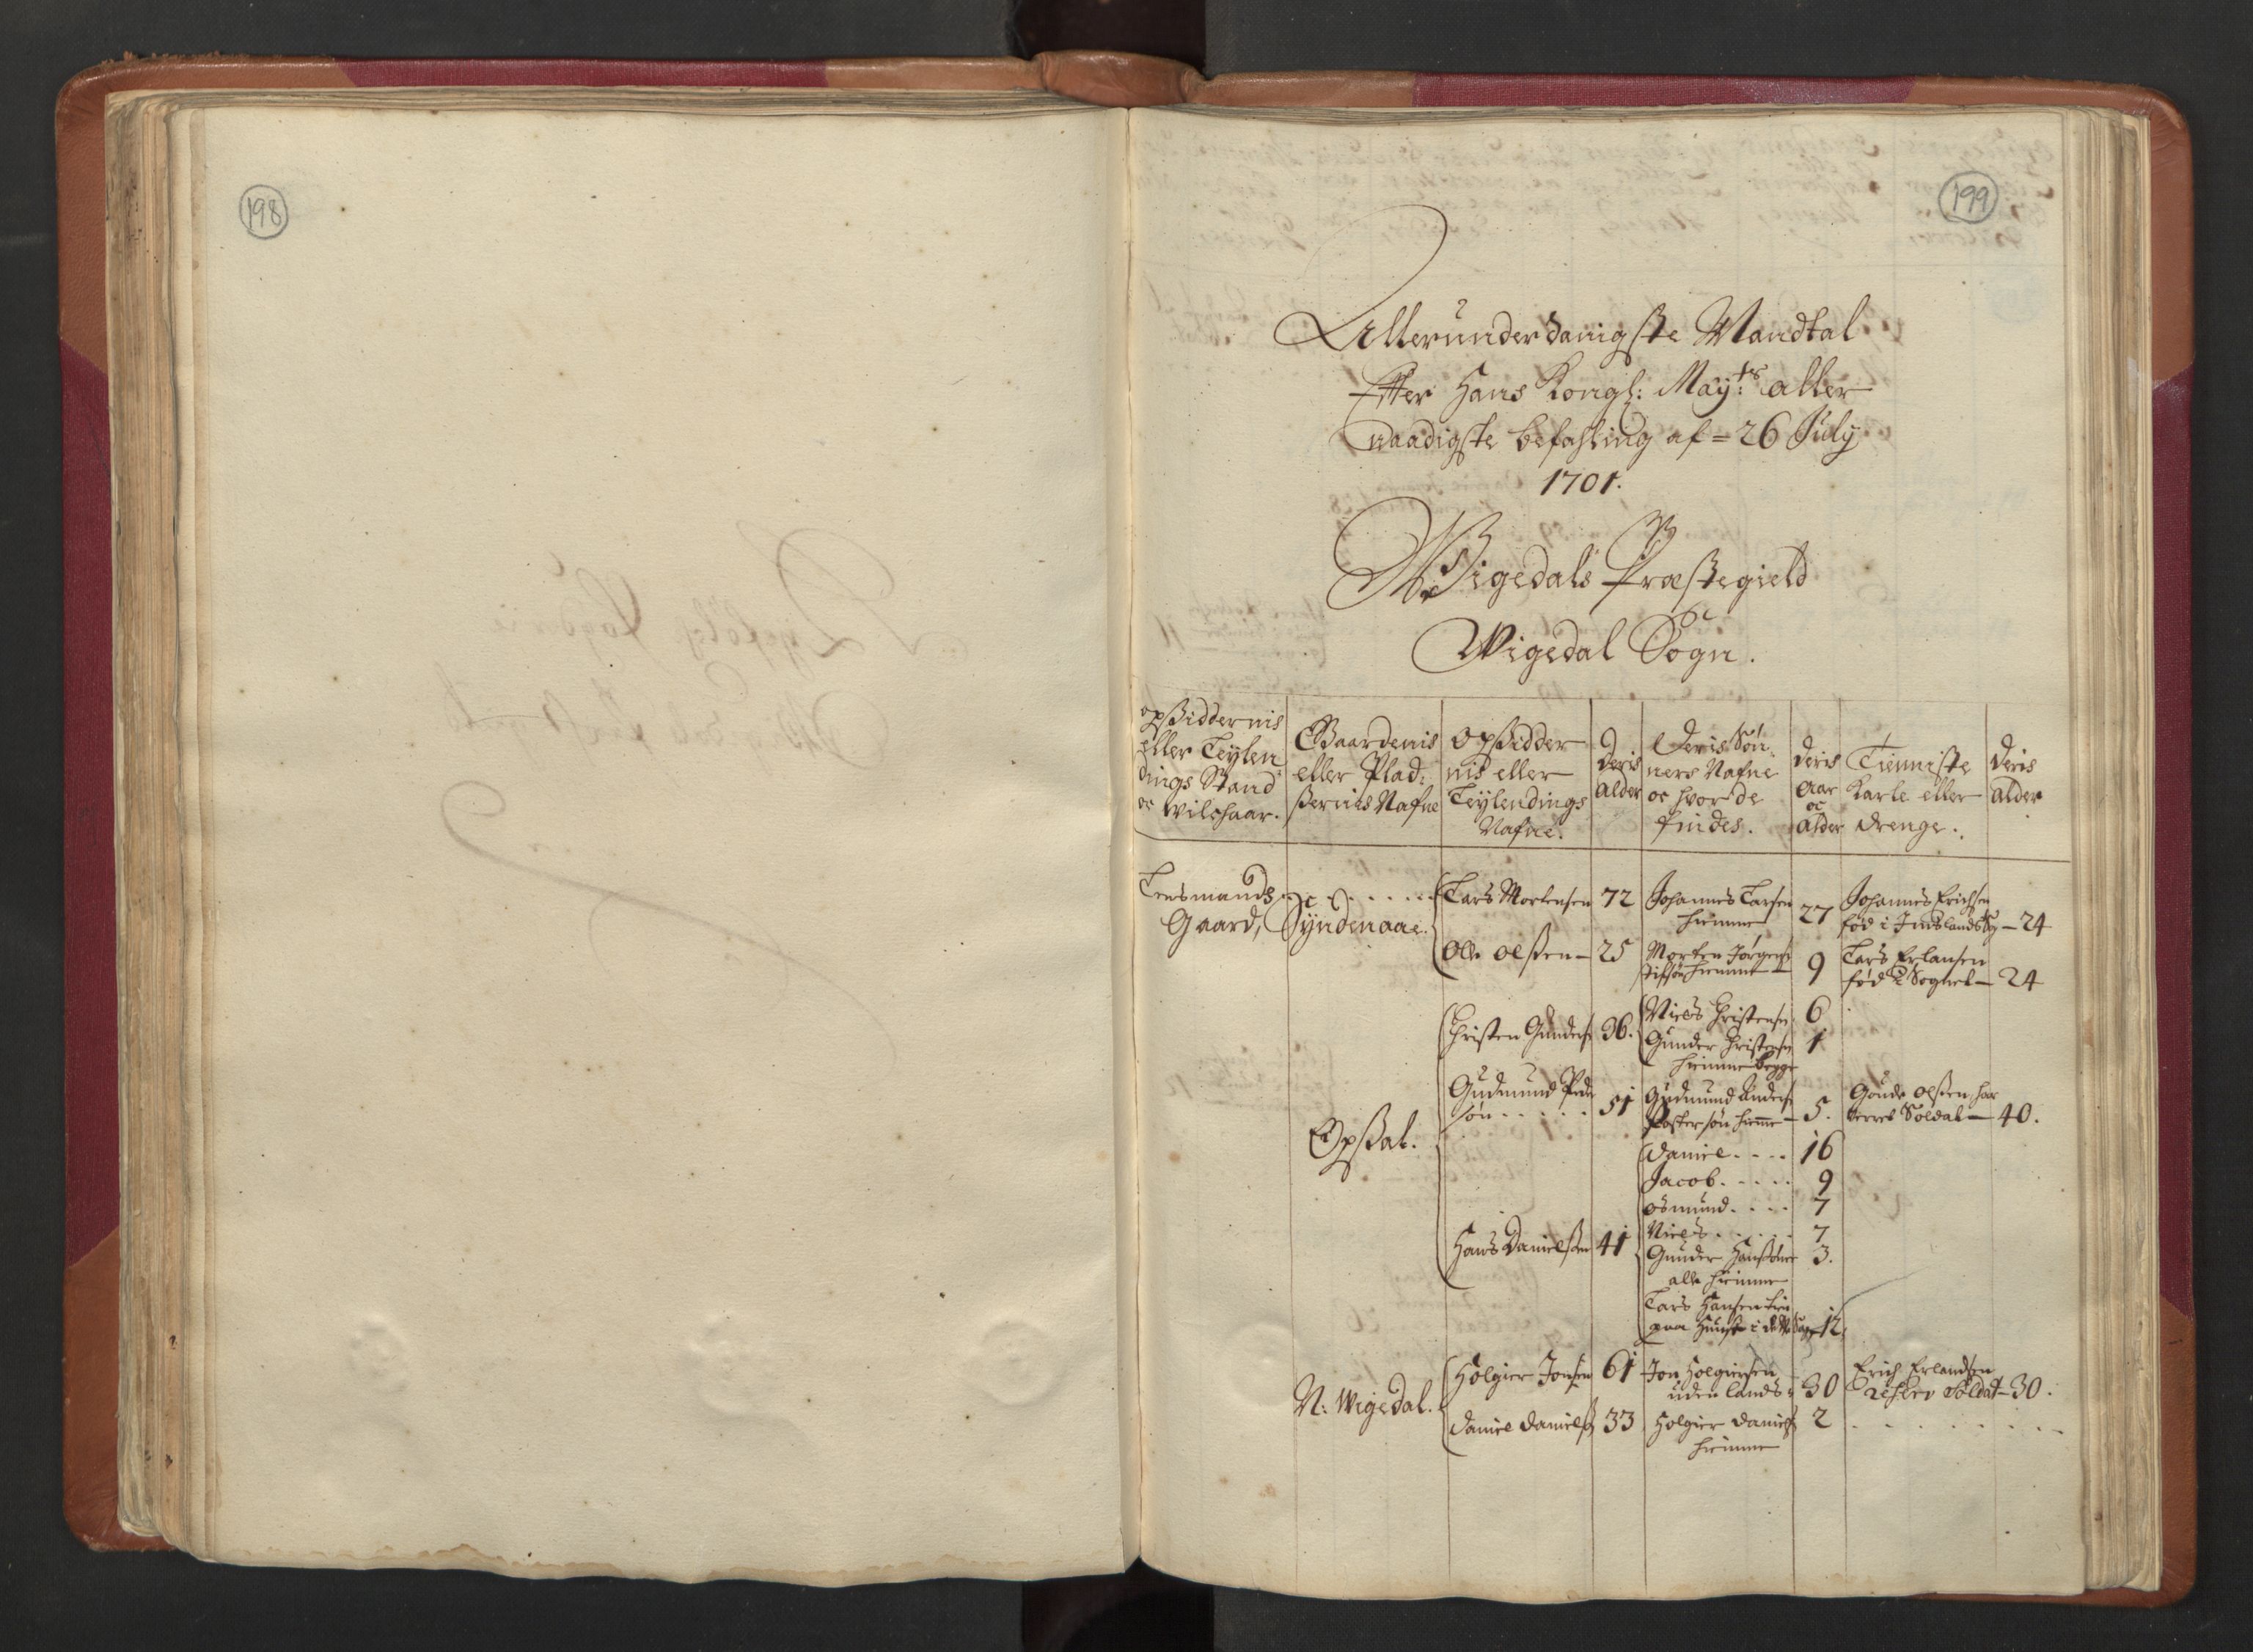 198
199
Allerunderdanigste Mandtal
Efter Hans Kongl: Mayts aller
naadigste befahling af = 26 July
1701.
Wigedals Præstegield
Wigedal Sogn.
opsiddernis
eller Leylen
dings Stand
oc vilchaar.
Gaardenis
eller Plad:
sernis Nafne
opsidder
nis eller
Leylendings
Nafne.
Deris
Alder
Deris Søn
ners Nafne
oc hvor de
findes.
deris
Aar
oc
Alder
Tienniste
Karle eller
drenge.
deris
Alder
Lensmands
Gaard, Syndenaae.
Lars Mortensen 72 Johannes Larsen
hiemme 27 Johannes Erichsen
fød i 24
Olle Olssen - 25 Morten Jørgens
stifsøn hiemme 9 Lars Erlansen
fød i Sognet - 24
Opsal.
Christen Gunders 36. Niels Christensen 6
Gunder Christensen 1
hiemme begge
Gudmund Peder
søn - - - - 51 Gudmund Anders
Fostersøn hiemme - 5. Goude Olssen har
verret Soldat - 40.
Hans Danielssen 41 Daniel - - - - 16
Jacob - - - - 9
Osmund - - - - 7
Niels - - - - 7
Gunder Hanssøner 3.
alle hiemme
Lars Hansen
paa 12
N: Wigedal.
Holgier Jonsen 61 Jon Holgiersen
uden lands 30 Erich Erlandsen
Soldat - 30.
Daniel Daniels 33 Holgier Daniels 2
hiemme